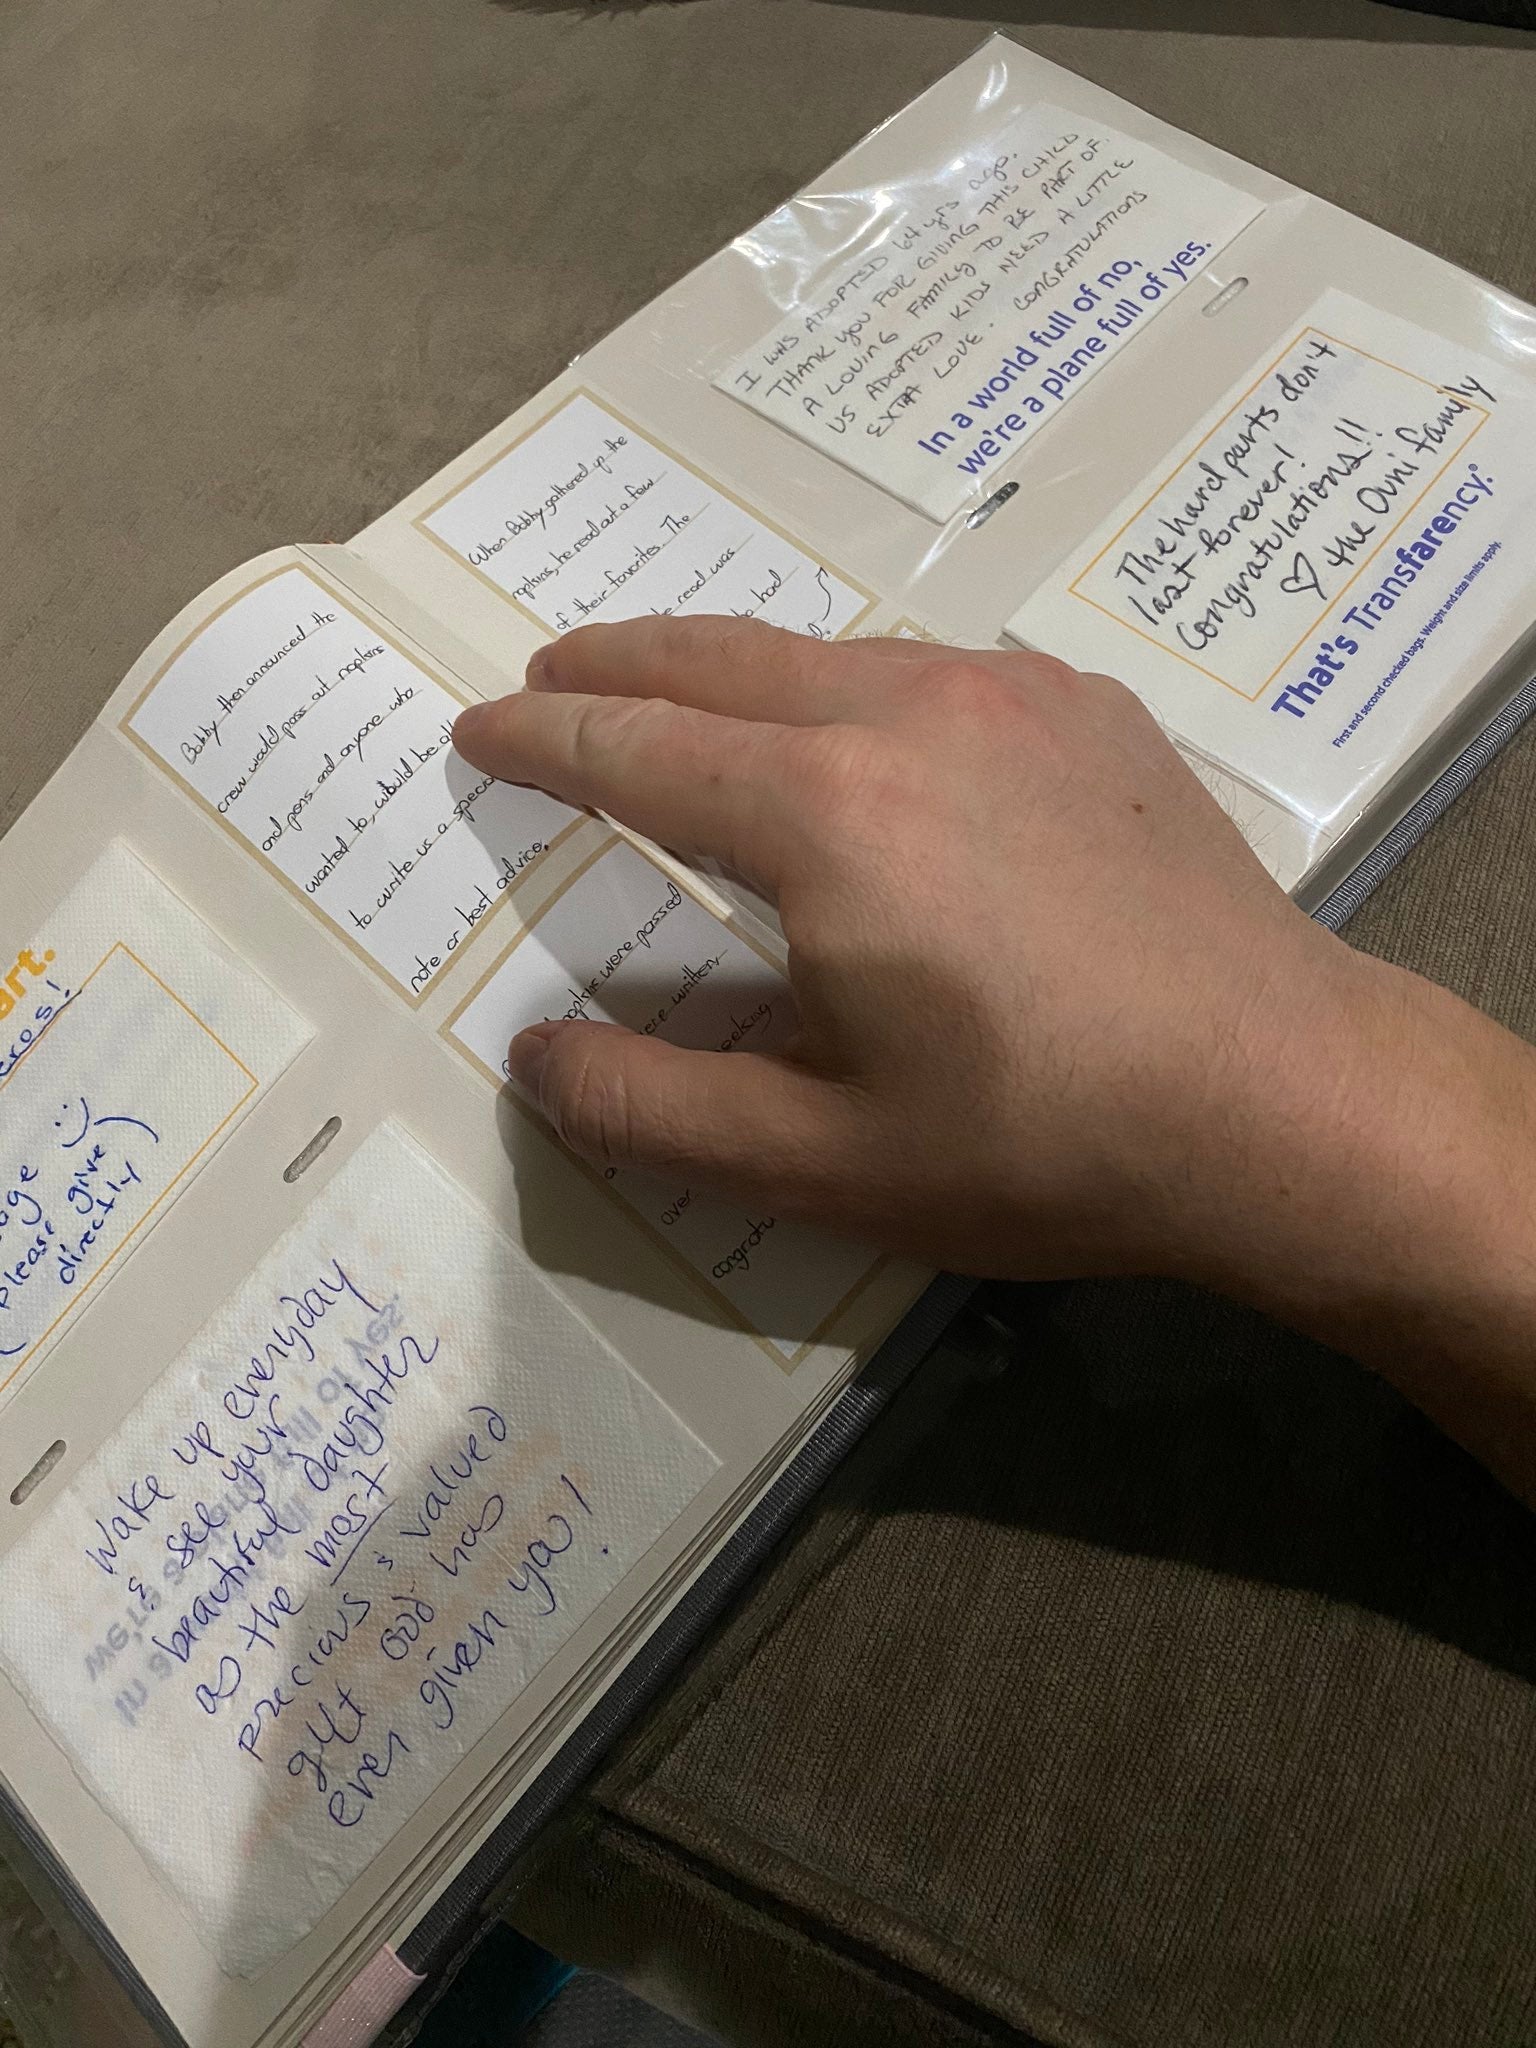 art.
!
(please give
directly)
Wake up everyday
& see your
beautiful daughter
as the most
precious & valued
gift God has
ever given ya!
Bobby then announced the
crew would pass out napkins
and pens and anyone who
wanted to, would be
to write us a
note or best advice.
napkins were passed
written
over
When Bobby gathered up the
napkins, he read out a few
of their favorites. The
read was
had
I WAS ADOPTED 64 yrs ago.
THANK YOU FOR GIVING THIS CHILD
A LOVING FAMILY TO BE PART OF.
US ADOPTED KIDS NEED A LITTLE
EXTRA LOVE. CONGRATULATIONS
In a world full of no,
we're a plane full of yes.
The hard parts don't
last forever!
Congratulations!!
♡ the Ovni family
That's Transfarency.®
First and second checked bags. Weight and size limits apply.